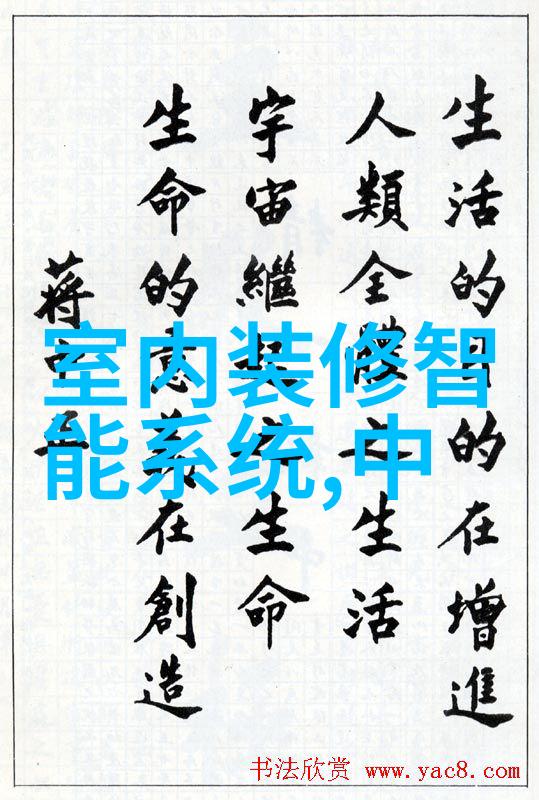 生活的目的在增進
人類全體之生活
宇宙繼起之生命
生命的意義在創造
蔣中正
室内装修智
能系统,中
书法欣赏 www.yac8.com